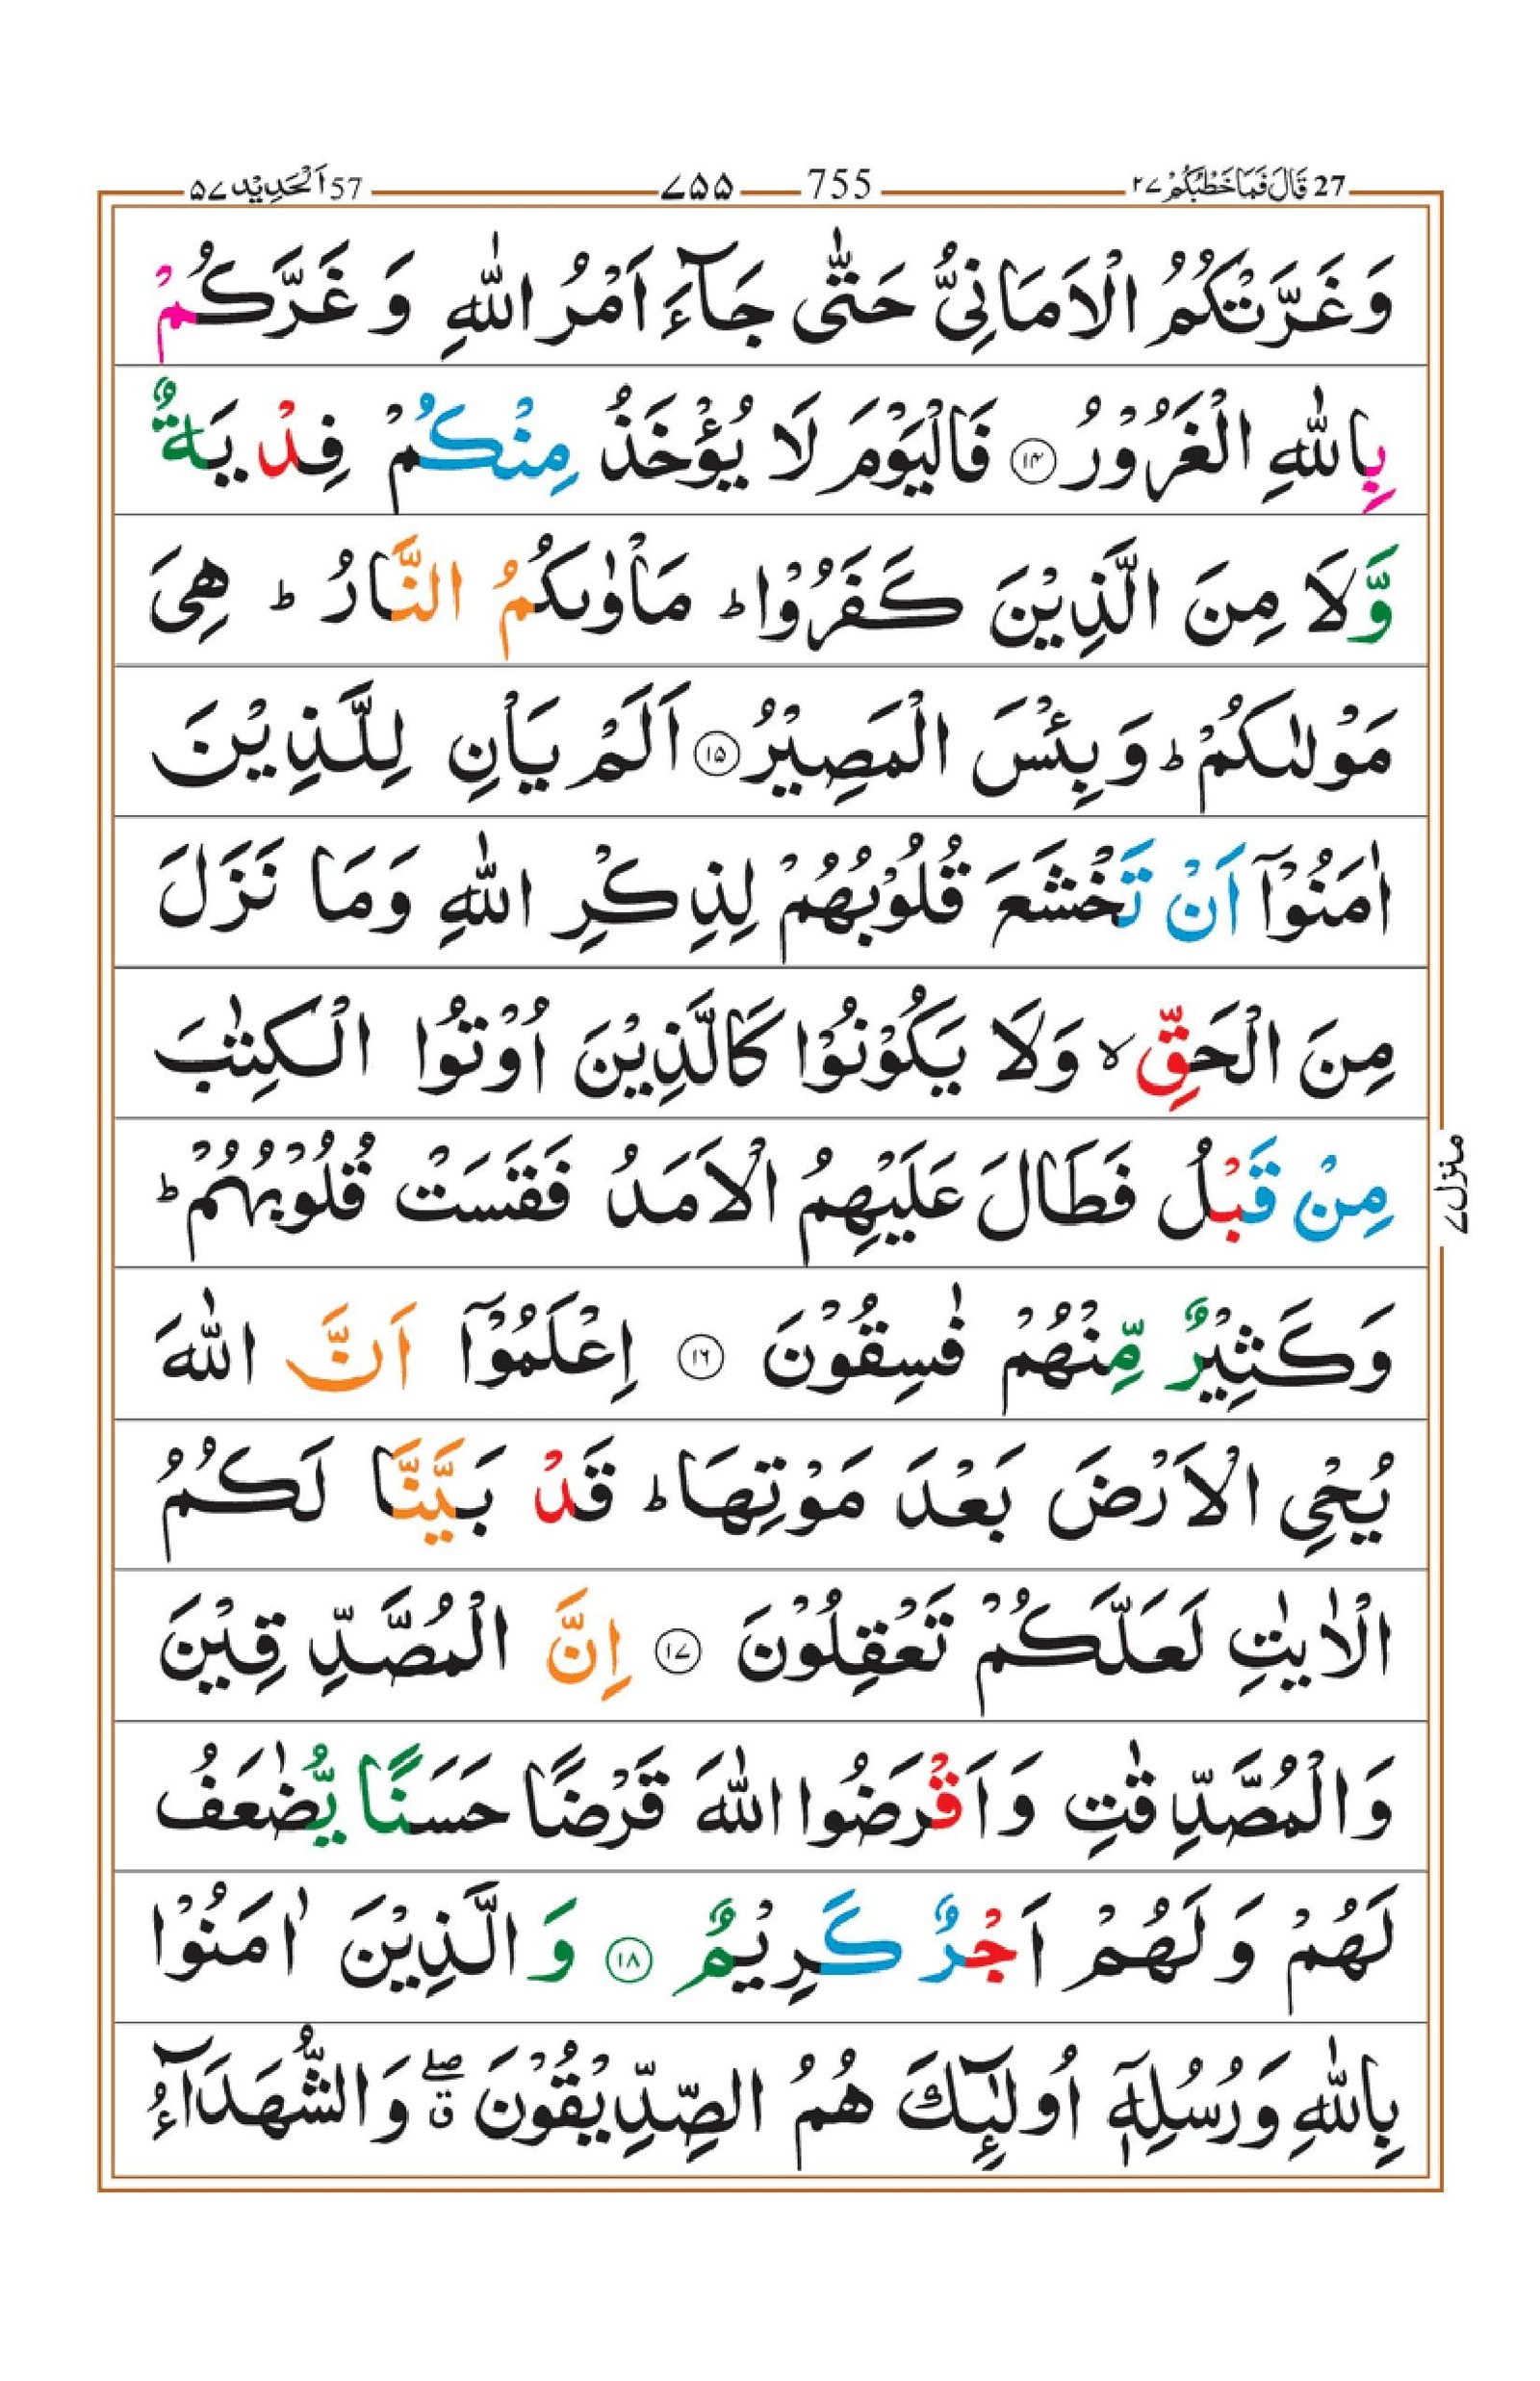 27 قَالَ فَمَا خَطْبُكُمْ ٢٧ 755 ٧٥٥ 57 اَلْحَدِيْد ٥٧
وَغَرَّتْكُمُ الْاَمَانِيُّ حَتّٰى جَآءَ اَمْرُ اللّٰهِ وَ غَرَّكُمْ
بِاللّٰهِ الْغَرُوْرُ ﴿١٤﴾ فَالْيَوْمَ لَا يُؤْخَذُ مِنْكُمْ فِدْيَةٌ
وَّلَا مِنَ الَّذِيْنَ كَفَرُوْا ؕ مَاْوٰىكُمُ النَّارُ ؕ هِىَ
مَوْلٰىكُمْ ؕ وَ بِئْسَ الْمَصِيْرُ ﴿١٥﴾ اَلَمْ يَاْنِ لِلَّذِيْنَ
اٰمَنُوْۤا اَنْ تَخْشَعَ قُلُوْبُهُمْ لِذِكْرِ اللّٰهِ وَمَا نَزَلَ
مِنَ الْحَقِّ ۙ وَلَا يَكُوْنُوْا كَالَّذِيْنَ اُوْتُوا الْكِتٰبَ
مِنْ قَبْلُ فَطَالَ عَلَيْهِمُ الْاَمَدُ فَقَسَتْ قُلُوْبُهُمْ ؕ
وَكَثِيْرٌ مِّنْهُمْ فٰسِقُوْنَ ﴿١٦﴾ اِعْلَمُوْۤا اَنَّ اللّٰهَ
يُحْىِ الْاَرْضَ بَعْدَ مَوْتِهَا ؕ قَدْ بَيَّنَّا لَكُمُ
الْاٰيٰتِ لَعَلَّكُمْ تَعْقِلُوْنَ ﴿١٧﴾ اِنَّ الْمُصَّدِّقِيْنَ
وَالْمُصَّدِّقٰتِ وَ اَقْرَضُوا اللّٰهَ قَرْضًا حَسَنًا يُّضٰعَفُ
لَهُمْ وَ لَهُمْ اَجْرٌ كَرِيْمٌ ﴿١٨﴾ وَ الَّذِيْنَ اٰمَنُوْا
بِاللّٰهِ وَرُسُلِهٖۤ اُولٰٓئِكَ هُمُ الصِّدِّيْقُوْنَ ۖۗ وَالشُّهَدَآءُ
منزل ٧